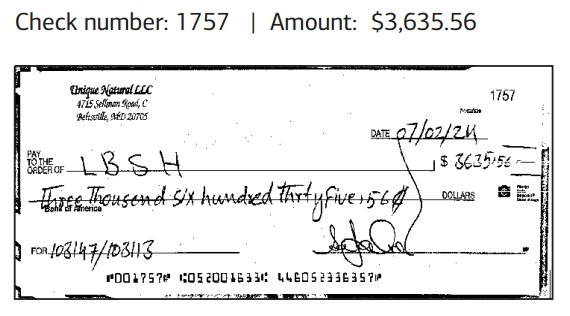 Check number: 1757 | Amount: $3,635.56
Unique Natural LLC
4715 Sellman Road, C
Beltsville, MD 20705
1757
DATE 07/02/24
PAY
TO THE
ORDER OF LBSH $ 3635.56
Three Thousand six hundred thrty five, 56¢ DOLLARS
Bank of America
FOR 103147/103113
⑈001757⑈ ⑆052001633⑆ 446052336357⑈